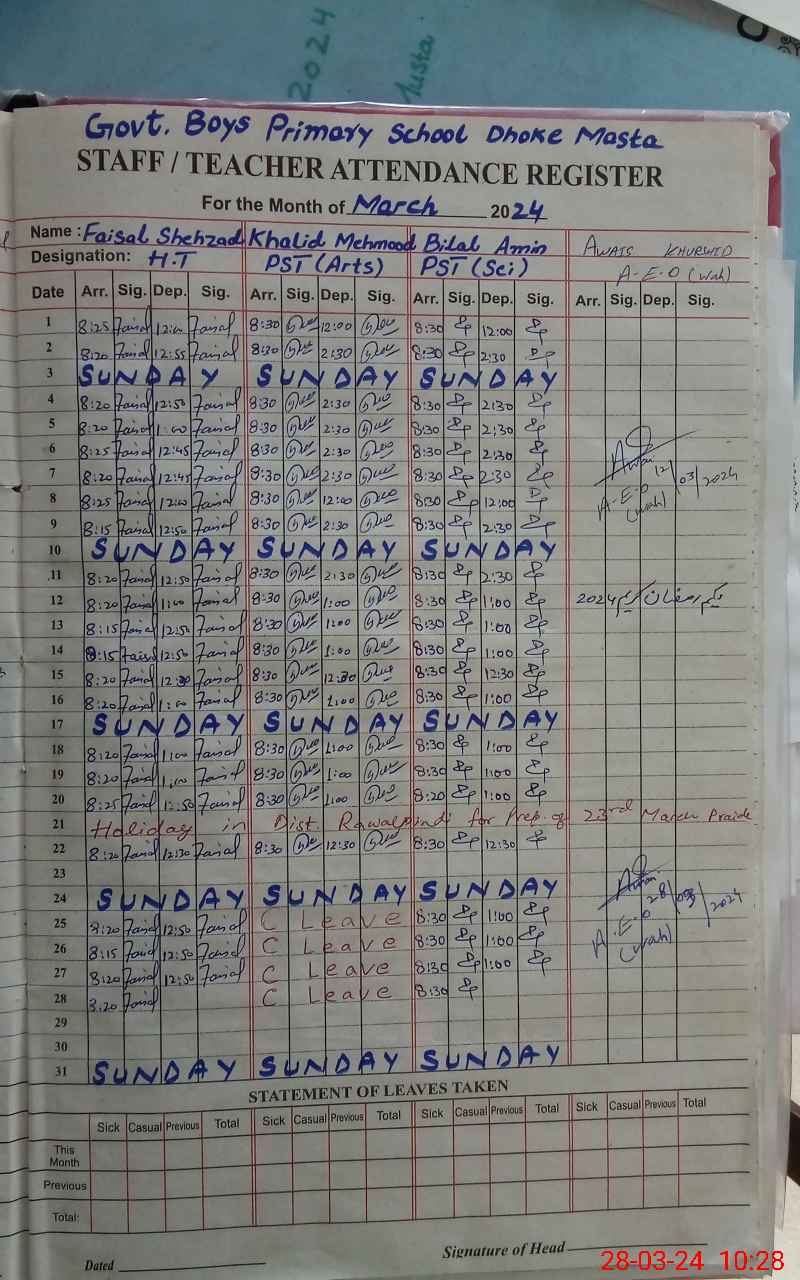 2024
Musta.
Govt. Boys Primary School Dhoke Masta
STAFF / TEACHER ATTENDANCE REGISTER
For the Month of March 2024
Name : Faisal Shehzad Khalid Mehmood Bilal Amin Awais Khurshid
Designation: H.T PST (Arts) PST (Sci) A-E-O (wah)
Date Arr. Sig. Dep. Sig. Arr. Sig. Dep. Sig. Arr. Sig. Dep. Sig. Arr. Sig. Dep. Sig.
1 8:25 Faisal 12:00 Faisal 8:30 12:00 8:30 12:00
2 8:20 Faisal 12:55 Faisal 8:30 2:30 8:30 2:30
3 SUNDAY SUNDAY SUNDAY
4 8:20 Faisal 12:50 Faisal 8:30 2:30 8:30 2:30
5 8:20 Faisal 1:00 Faisal 8:30 2:30 8:30 2:30
6 8:25 Faisal 12:45 Faisal 8:30 2:30 8:30 2:30
7 8:20 Faisal 12:45 Faisal 8:30 2:30 8:30 2:30 Awais 12/03/2024
8 8:25 Faisal 12:00 Faisal 8:30 12:00 8:30 12:00 A-E-O
9 8:15 Faisal 12:50 Faisal 8:30 2:30 8:30 2:30 (wah)
10 SUNDAY SUNDAY SUNDAY
11 8:20 Faisal 12:50 Faisal 8:30 2:30 8:30 2:30
12 8:20 Faisal 1:00 Faisal 8:30 1:00 8:30 1:00 یکم رمضان کریم 2024
13 8:15 Faisal 12:50 Faisal 8:30 1:00 8:30 1:00
14 8:15 Faisal 12:50 Faisal 8:30 1:00 8:30 1:00
15 8:20 Faisal 12:30 Faisal 8:30 12:30 8:30 12:30
16 8:20 Faisal 1:00 Faisal 8:30 1:00 8:30 1:00
17 SUNDAY SUNDAY SUNDAY
18 8:20 Faisal 1:00 Faisal 8:30 1:00 8:30 1:00
19 8:20 Faisal 1:00 Faisal 8:30 1:00 8:30 1:00
20 8:25 Faisal 12:50 Faisal 8:30 1:00 8:20 1:00
21 Holiday in Dist. Rawalpindi for Prep. of 23rd March Praide
22 8:20 Faisal 12:30 Faisal 8:30 12:30 8:30 12:30
23
24 SUNDAY SUNDAY SUNDAY Awais 28/03/2024
25 8:20 Faisal 12:50 Faisal C Leave 8:30 1:00 A-E-O
26 8:15 Faisal 12:50 Faisal C Leave 8:30 1:00 (wah)
27 8:20 Faisal 12:50 Faisal C Leave 8:30 1:00
28 8:20 Faisal C Leave 8:30
29
30
31 SUNDAY SUNDAY SUNDAY
STATEMENT OF LEAVES TAKEN
Sick Casual Previous Total Sick Casual Previous Total Sick Casual Previous Total Sick Casual Previous Total
This Month
Previous
Total:
Dated Signature of Head
28-03-24 10:28